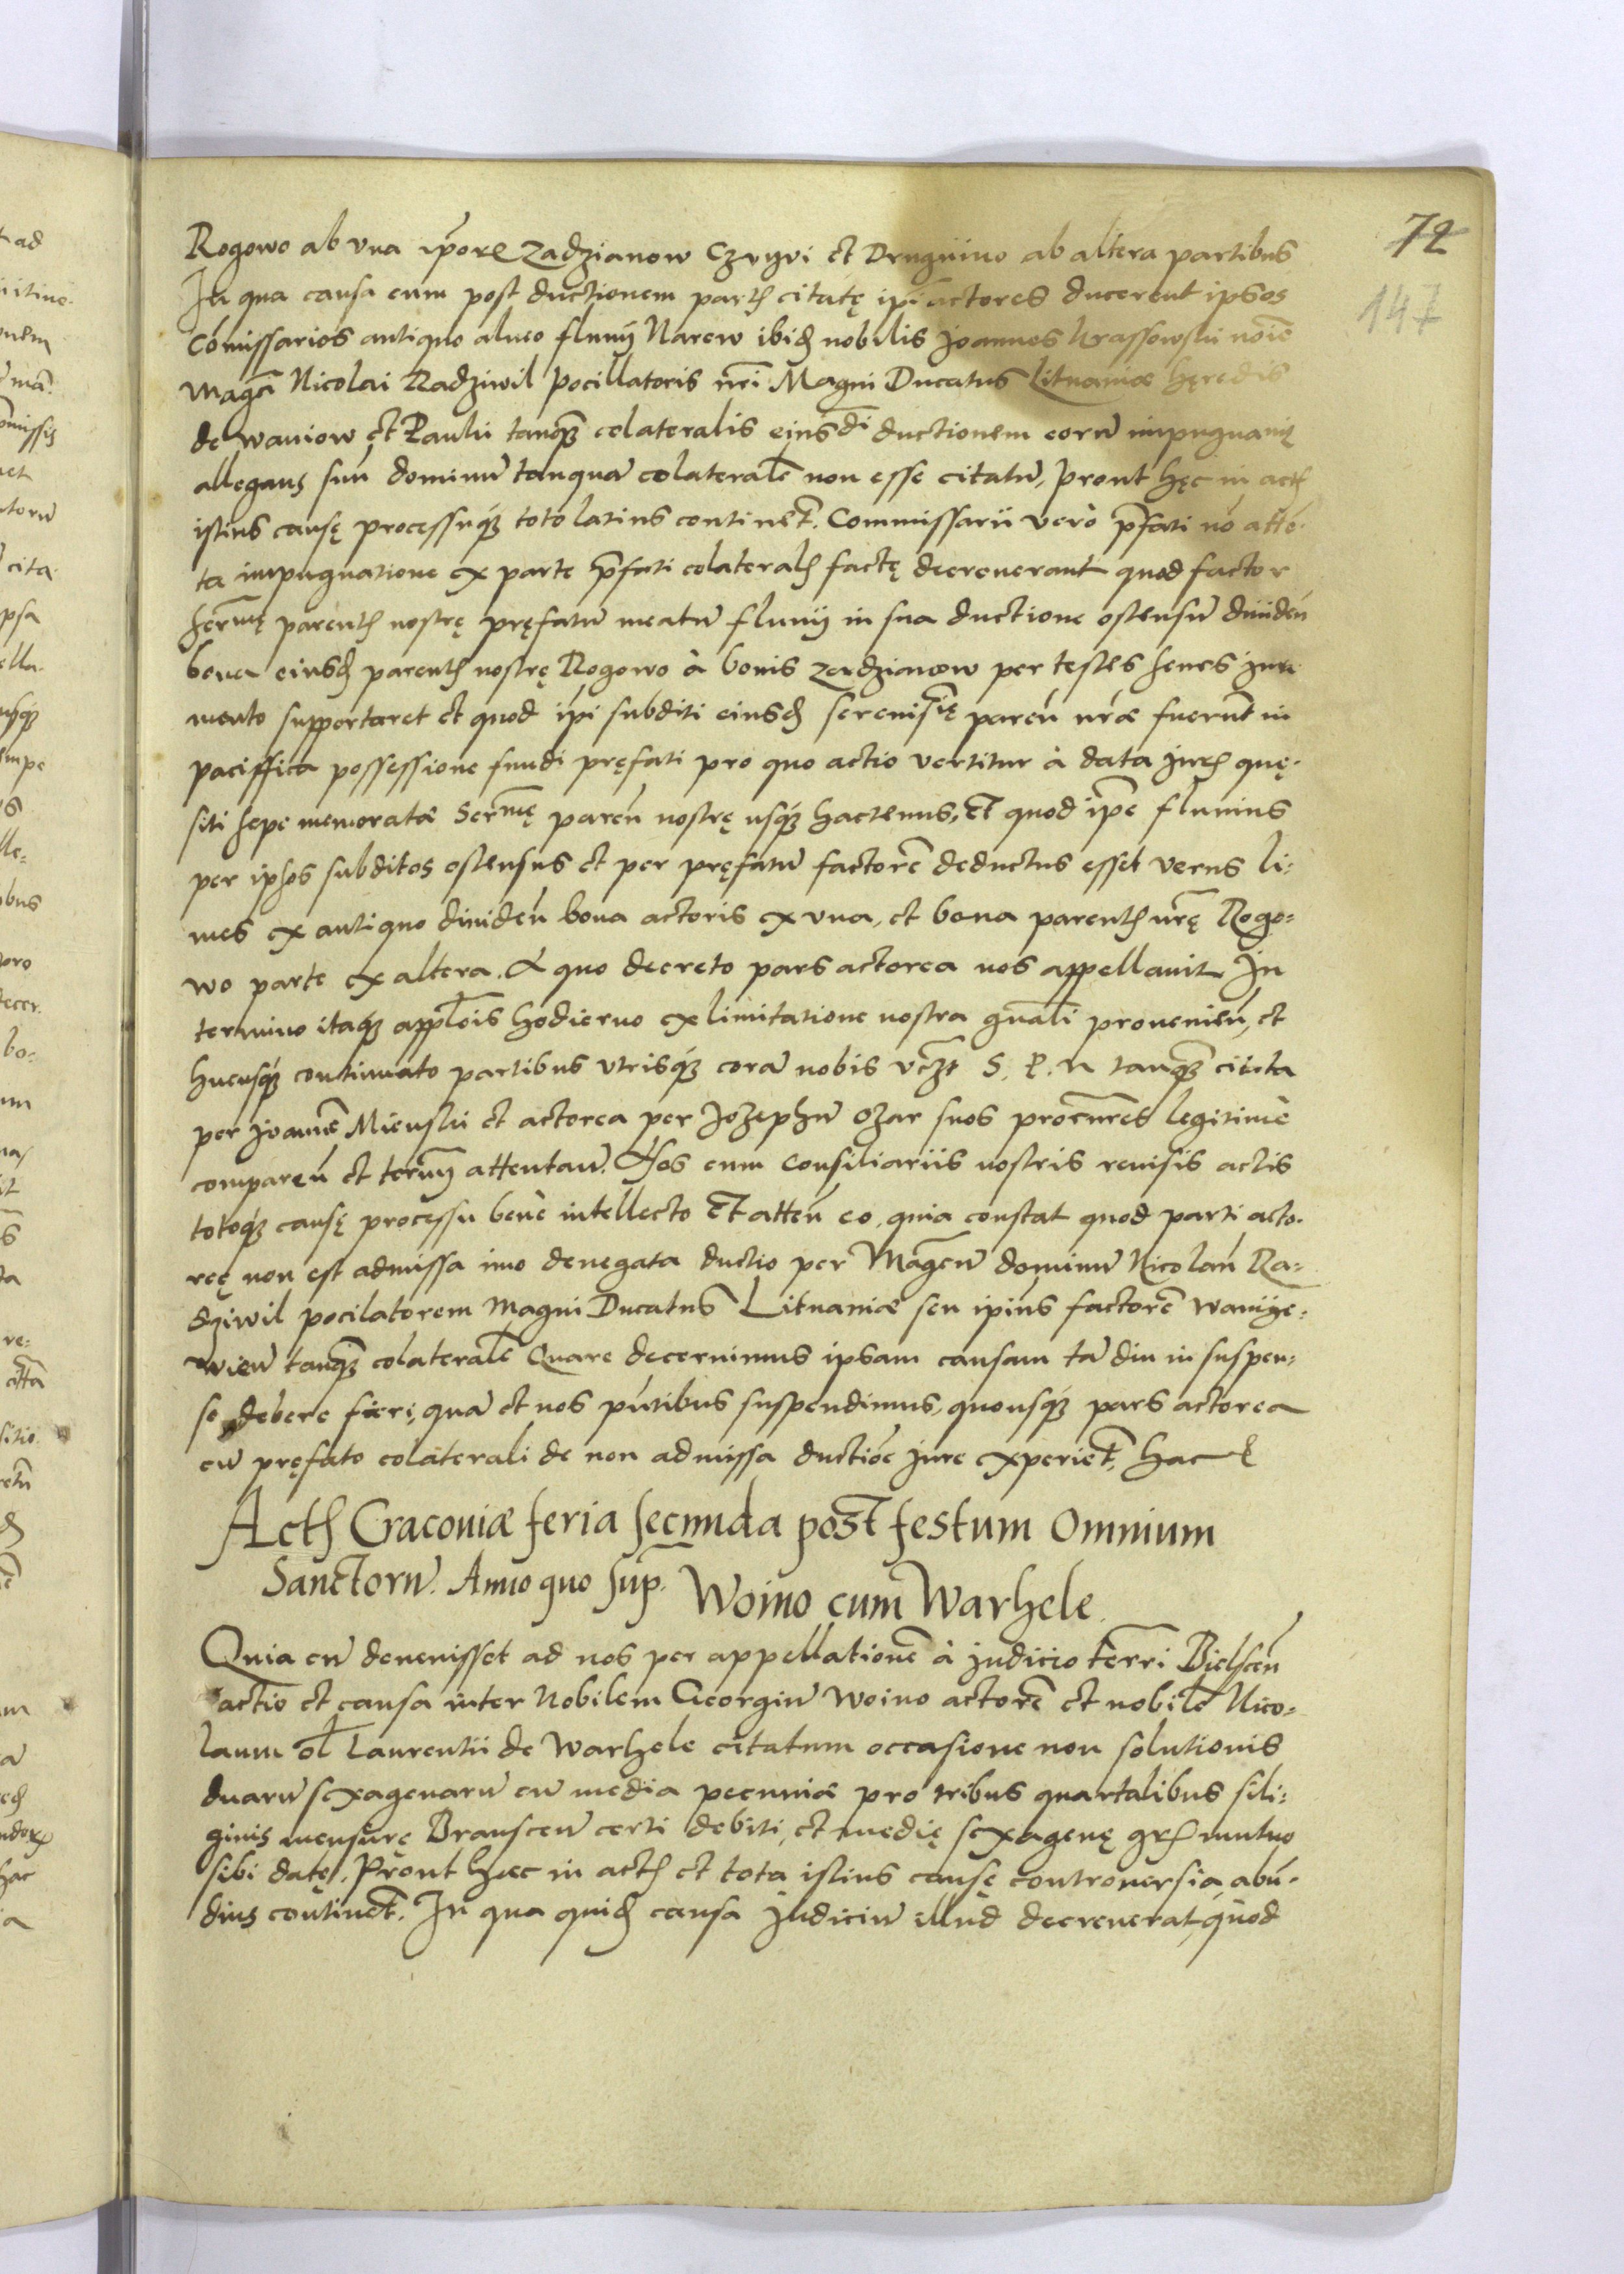 72
147
Rogowo ab vna ip̄orᵉ Zadzianow Czvyvi et Druguino ab altera partibus
In qua causa cum post ductionem partis citatę ipī actores ducerent ipsos
Cōmissarios antiquo alueo fluuij Narew ibidē nobilis Joannes Krassowski noīe
Magci Nicolai Radziwil Pocillatoris nrī Magni Ducatus Lituaniæ hęredis
de Waniow et Rauki tanqȝ colateralis eiusdī ductionem eorū impugnauit
allegans suū dominū tanquā colateralē non esse citatū, Prout hęc in actis
istius causę processuqȝ toto latius continēt. Commissarii verò p̄fati nō attē-
ta impugnatione ex parte p̄fati colateralis factę decreuerant quod factor
Sermę parentis nostrę pręfatū meatū fluuij in sua ductione ostensū diuidēn
bona eiusdē parentis nostrę Rogowo à bonis Zerdzianow per testes senes iura
mento supportaret et quod ip̄i subditi eiusdē serenisīę parēn nrǣ fuerūt in
paciffica possessione fundi pręfati pro quo actio vertitur à data iuris quę-
siti sepe memoratæ Sermę parēn nostrę usqȝ hactenus, Et quod ip̄e fluuius
per ipsos subditos ostensus et per pręfatū factorē deductus esset verus li:
mes ex antiquo diuidēn bona actoris ex vna, et bona parentis nrę Rogo:
wo parte ex altera. A quo decreto pars actorea nos appellauit In
termino itaqȝ appl̄ois hodierno ex limitatione nostra gn̄ali proueniēn, et
hucusqȝ continuato partibus vtrisqȝ corā nobis vczt S. P. N tanqȝ citata
per Joannē Mienski et actorea per Jozephū Ozar suos procūres legitimè
comparēn et termū attentan̄. Nos cum Consiliariis nostris reuisis actis
totoqȝ causę processu benè intellecto Et attēn eo, quia constat quod parti acto-
reę non est admissa imo denegata ductio per Magcū dominū Nicolaū Ra-
dziwil pocilatorem Magni Ducatus Lituaniæ seu ipius factorē Waniie-
wien̄ tanqȝ colateralē Quare decernimus ipsam causam tā diu in suspen:
so debere fieri, quā et nos pn̄tibus suspendimus, quousqȝ pars actorea
cū pręfato colaterali de non admissa ductiōe iure experiēt, hac
Actis Cracouiæ feria secunda post festum Omnium
Sanctorū. Anno quo sup̄.
Woino cum Warhele
Quia cū deuenisset ad nos per appellationē à judicio terrī Bielscēn
actio et causa inter Nobilem Georgiū Woino actorē et nobilē Nico:
laum ol̄ Laurentii de Warhele citatum occasione non solutionis
duarū sexagenarū cū media pecuniæ pro tribus quartalibus sili:
ginis mensurę Branscen̄ certi debiti, et medię sexagenę grs mutuo
sibi datę. Prout hæc in actis et tota istius causę controuersia abū-
dius continēt. In qua quidē causa Judiciū illud decreuerat, quod